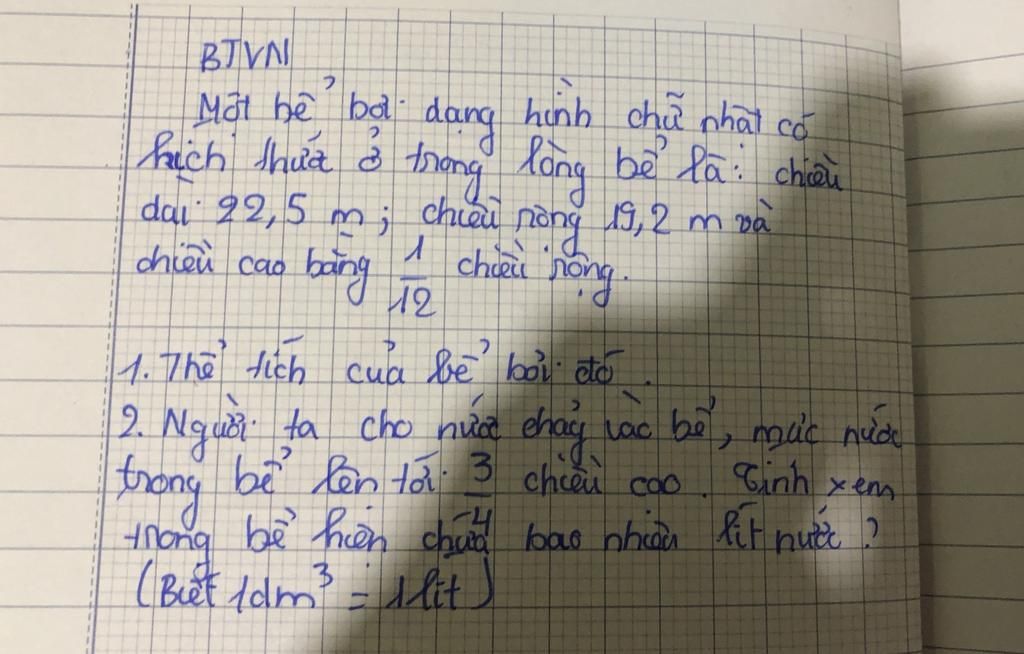 BTVN
Một bể bơi dạng hình chữ nhật có
kích thước ở trong lòng bể là: chiều
dài 22,5 m; chiều rộng 19,2 m và
chiều cao bằng 1/12 chiều rộng.
1. Thể tích của bể bơi đó.
2. Người ta cho nước chảy vào bể, mức nước
trong bể lên tới 3/4 chiều cao. Tính xem
trong bể hiện chứa bao nhiêu lít nước?
(Biết 1dm³ = 1 lít)